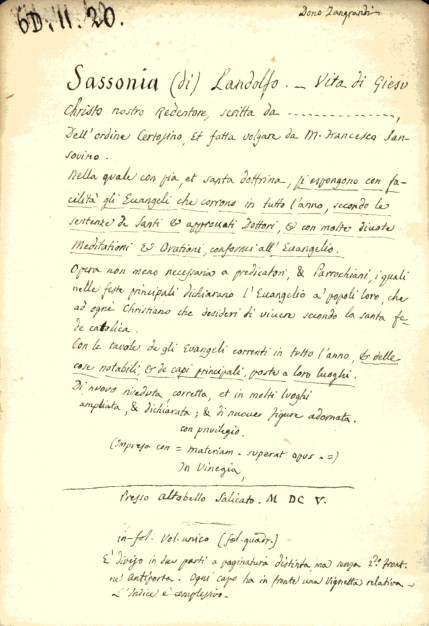 6D. II. 20.
Dono Zangrandi
Sassonia (di) Landolfo. - Vita di Giesu
Christo nostro Redentore, scritta da ----------------,
Dell'ordine Certosino, et fatta volgare da M. Francesco San-
sovino.
Nella quale con pia, et santa dottrina, si espongono con fa-
cilità gli Euangeli che corrono in tutto l'anno, secondo le
sentenze de Santi & approuati Dottori, & con molte diuote
Meditationi & Orationi, conformi all'Euangelio.
Opera non meno necessaria a predicatori, & Parrochiani, i quali
nelle feste principali dichiarano l'Euangelio a' popoli loro, che
ad ogni Christiano che desideri di viuere secondo la santa fe-
de catolica.
Con le tavole de gli Evangeli correnti in tutto l'anno, & delle
cose notabili, & de capi principali, poste a loro luoghi.
Di nuovo riveduta, corretta, et in molti luoghi
ampliata, & dichiarata; & di nuoue figure adornata.
con privilegio.
(Impresa con = materiam superat opus - =)
In Vinegia,
Presso Altobello Salicato. M DC V.
in-fol. Vol. unico (fol. quadr.)
E' diviso in due parti a paginatura distinta, ma senza 2.º front.
nè Antiporta. Ogni capo ha in fronte una Vignetta relativa -
L'Indice è complessivo -